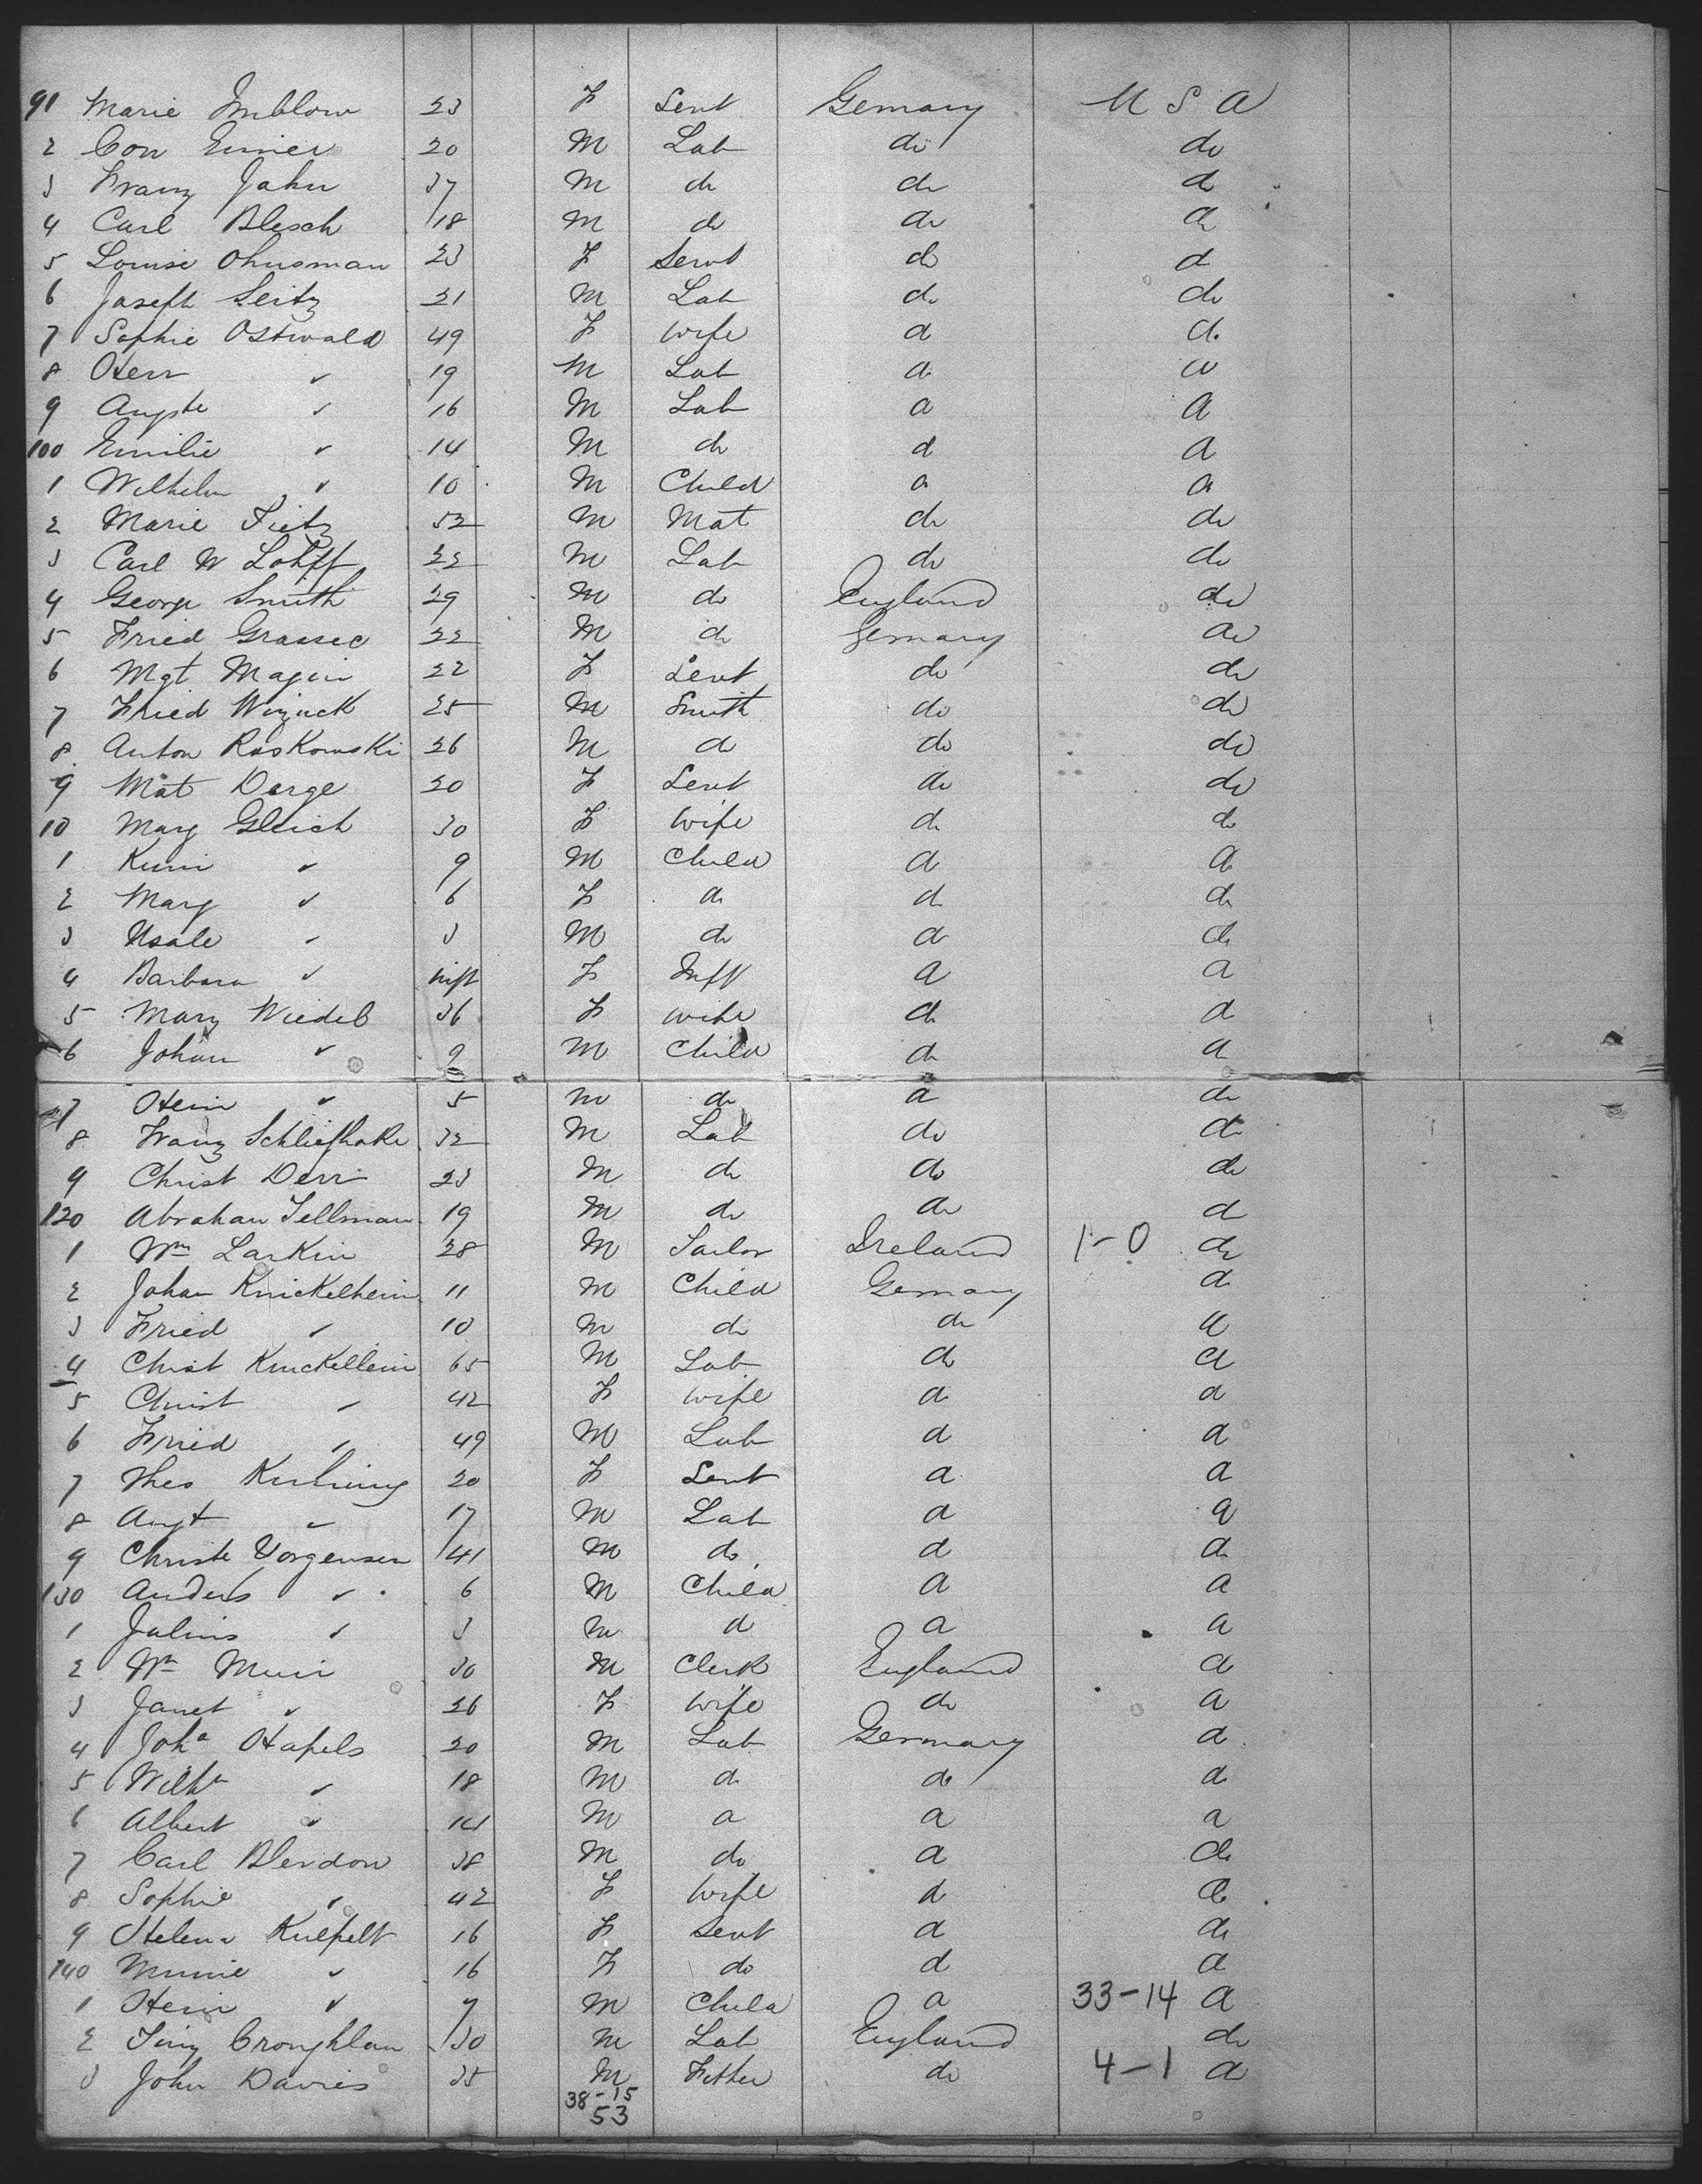 91 Marie Imblow 23 F Sent Gemany U S A
2 Con Eimer 20 M Lab do do
3 Franz Jahn 37 M do do do
4 Carl Blesch 18 M do do do
5 Louise Ohusman 23 F Servt do do
6 Joseph Seitz 21 M Lab do do
7 Sophie Ostwald 49 F wife do do
8 Herr " 19 M Lab do do
9 Augste " 16 M Lab do do
100 Emilie " 14 M do do do
1 Wilhelm " 10 M Child do do
2 Marie Tietz 52 M Mat do do
3 Carl W Lohff 22 M Lab do do
4 George Smith 29 M do England do
5 Fried Grassec 22 M do Gemany do
6 Mgt Magin 22 F Sent do do
7 Fried 25 M Smith do do
8 Anton Roskowski 26 M do do do
9 Mat Darge 20 F Sent do do
10 Mary Gleich 30 F Wife do do
1 Kuni " 9 M Child do do
2 Mary " 6 F do do do
3 " 3 M do do do
4 Barbara " inft F Inff do do
5 Mary Wiedel 36 F wife do do
6 Johan " 9 M Child do do
7 Hein " 5 M do do do
8 Franz Schliefhake 32 M Lab do do
9 Christ Derr 23 M do do do
120 Abraham Tellman 19 M do do do
1 Wm Larkin 28 M Tailor Ireland 1-0 do
2 Johan Knickelhein 11 M Child Gemany do
3 Fried " 10 M do do do
4 Christ Knickellein 65 M Lab do do
5 Christ " 42 F wife do do
6 Fried " 49 M Lab do do
7 Thes 20 F Sent do do
8 Augt " 17 M Lab do do
9 Christe Yorgensen 41 M do do do
130 Anders " 6 M Child do do
1 Julius " 3 M do do do
2 Wm Muir 30 M Clerk England do
3 Janet " 26 F Wife do do
4 Joha Hapels 20 M Lab Germany do
5 Wilhm " 18 M do do do
6 Albert " 14 M do do do
7 Carl Blendow 38 M do do do
8 Sophie " 42 F Wife do do
9 Helena Kulpelt 16 F Sent do do
140 Minnie " 16 F do do do
1 Hein " 7 M Child do 33-14 do
2 Timy Croughlan 30 M Lab England do
3 John Davies 35 M Fitter do 4-1 do
38-15
53